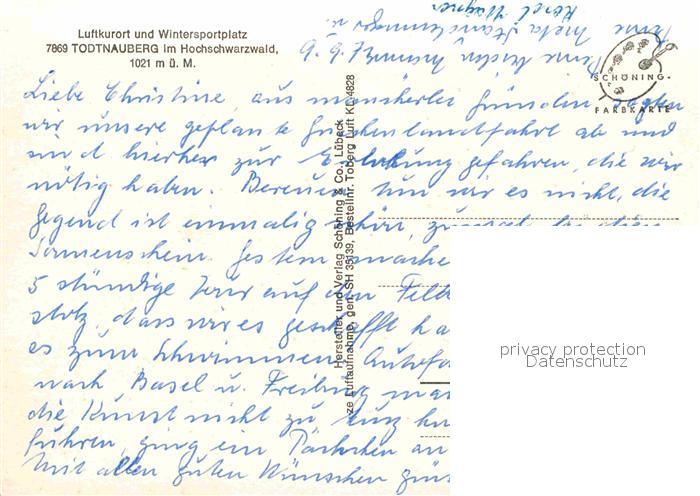 Luftkurort und Wintersportplatz
7869 TODTNAUBERG im Hochschwarzwald,
1021 m ü. M.
SCHÖNING-
FARBKARTE
Liebe Christine, aus mancherlei Gründen sagten
wir unsere geplante Griechenlandfahrt ab und
sind hierher zur Erholung gefahren, die wir
nötig haben. Bereuen tun wir es nicht, die
Gegend ist einmalig schön, zumal bei
Sonnenschein. Gestern
5 stündige Tour auf den
stolz, dass wir es geschafft
es zum Schwimmen.
nach Basel u. Freiburg
die Kunst nicht zu kurz
führen, ging ein Päckchen an
Mit allen guten Wünschen
Hersteller und Verlag Schöning & Co., Lübeck
ze Luftaufnahme, gen. SH 35139, Bestellnr. Toberg Luft KL 4828
privacy protection
Datenschutz